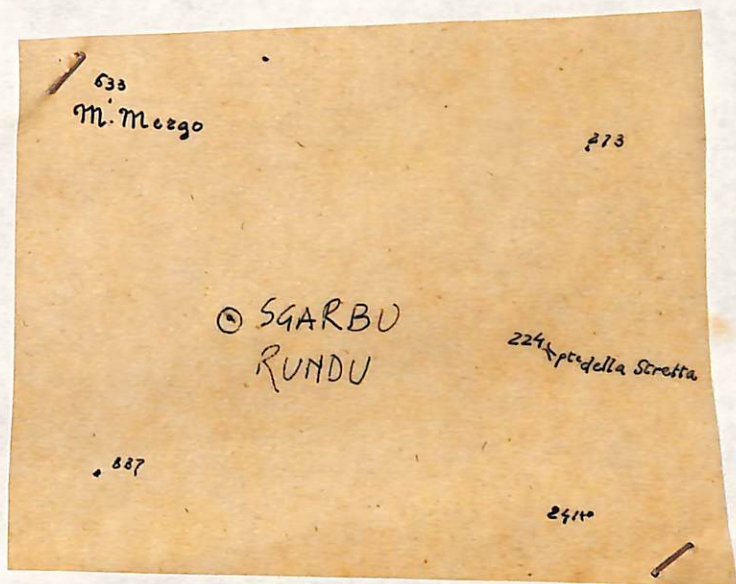 633
M. Mergo
273
SGARBU
RUNDU
224 pte della Stretta